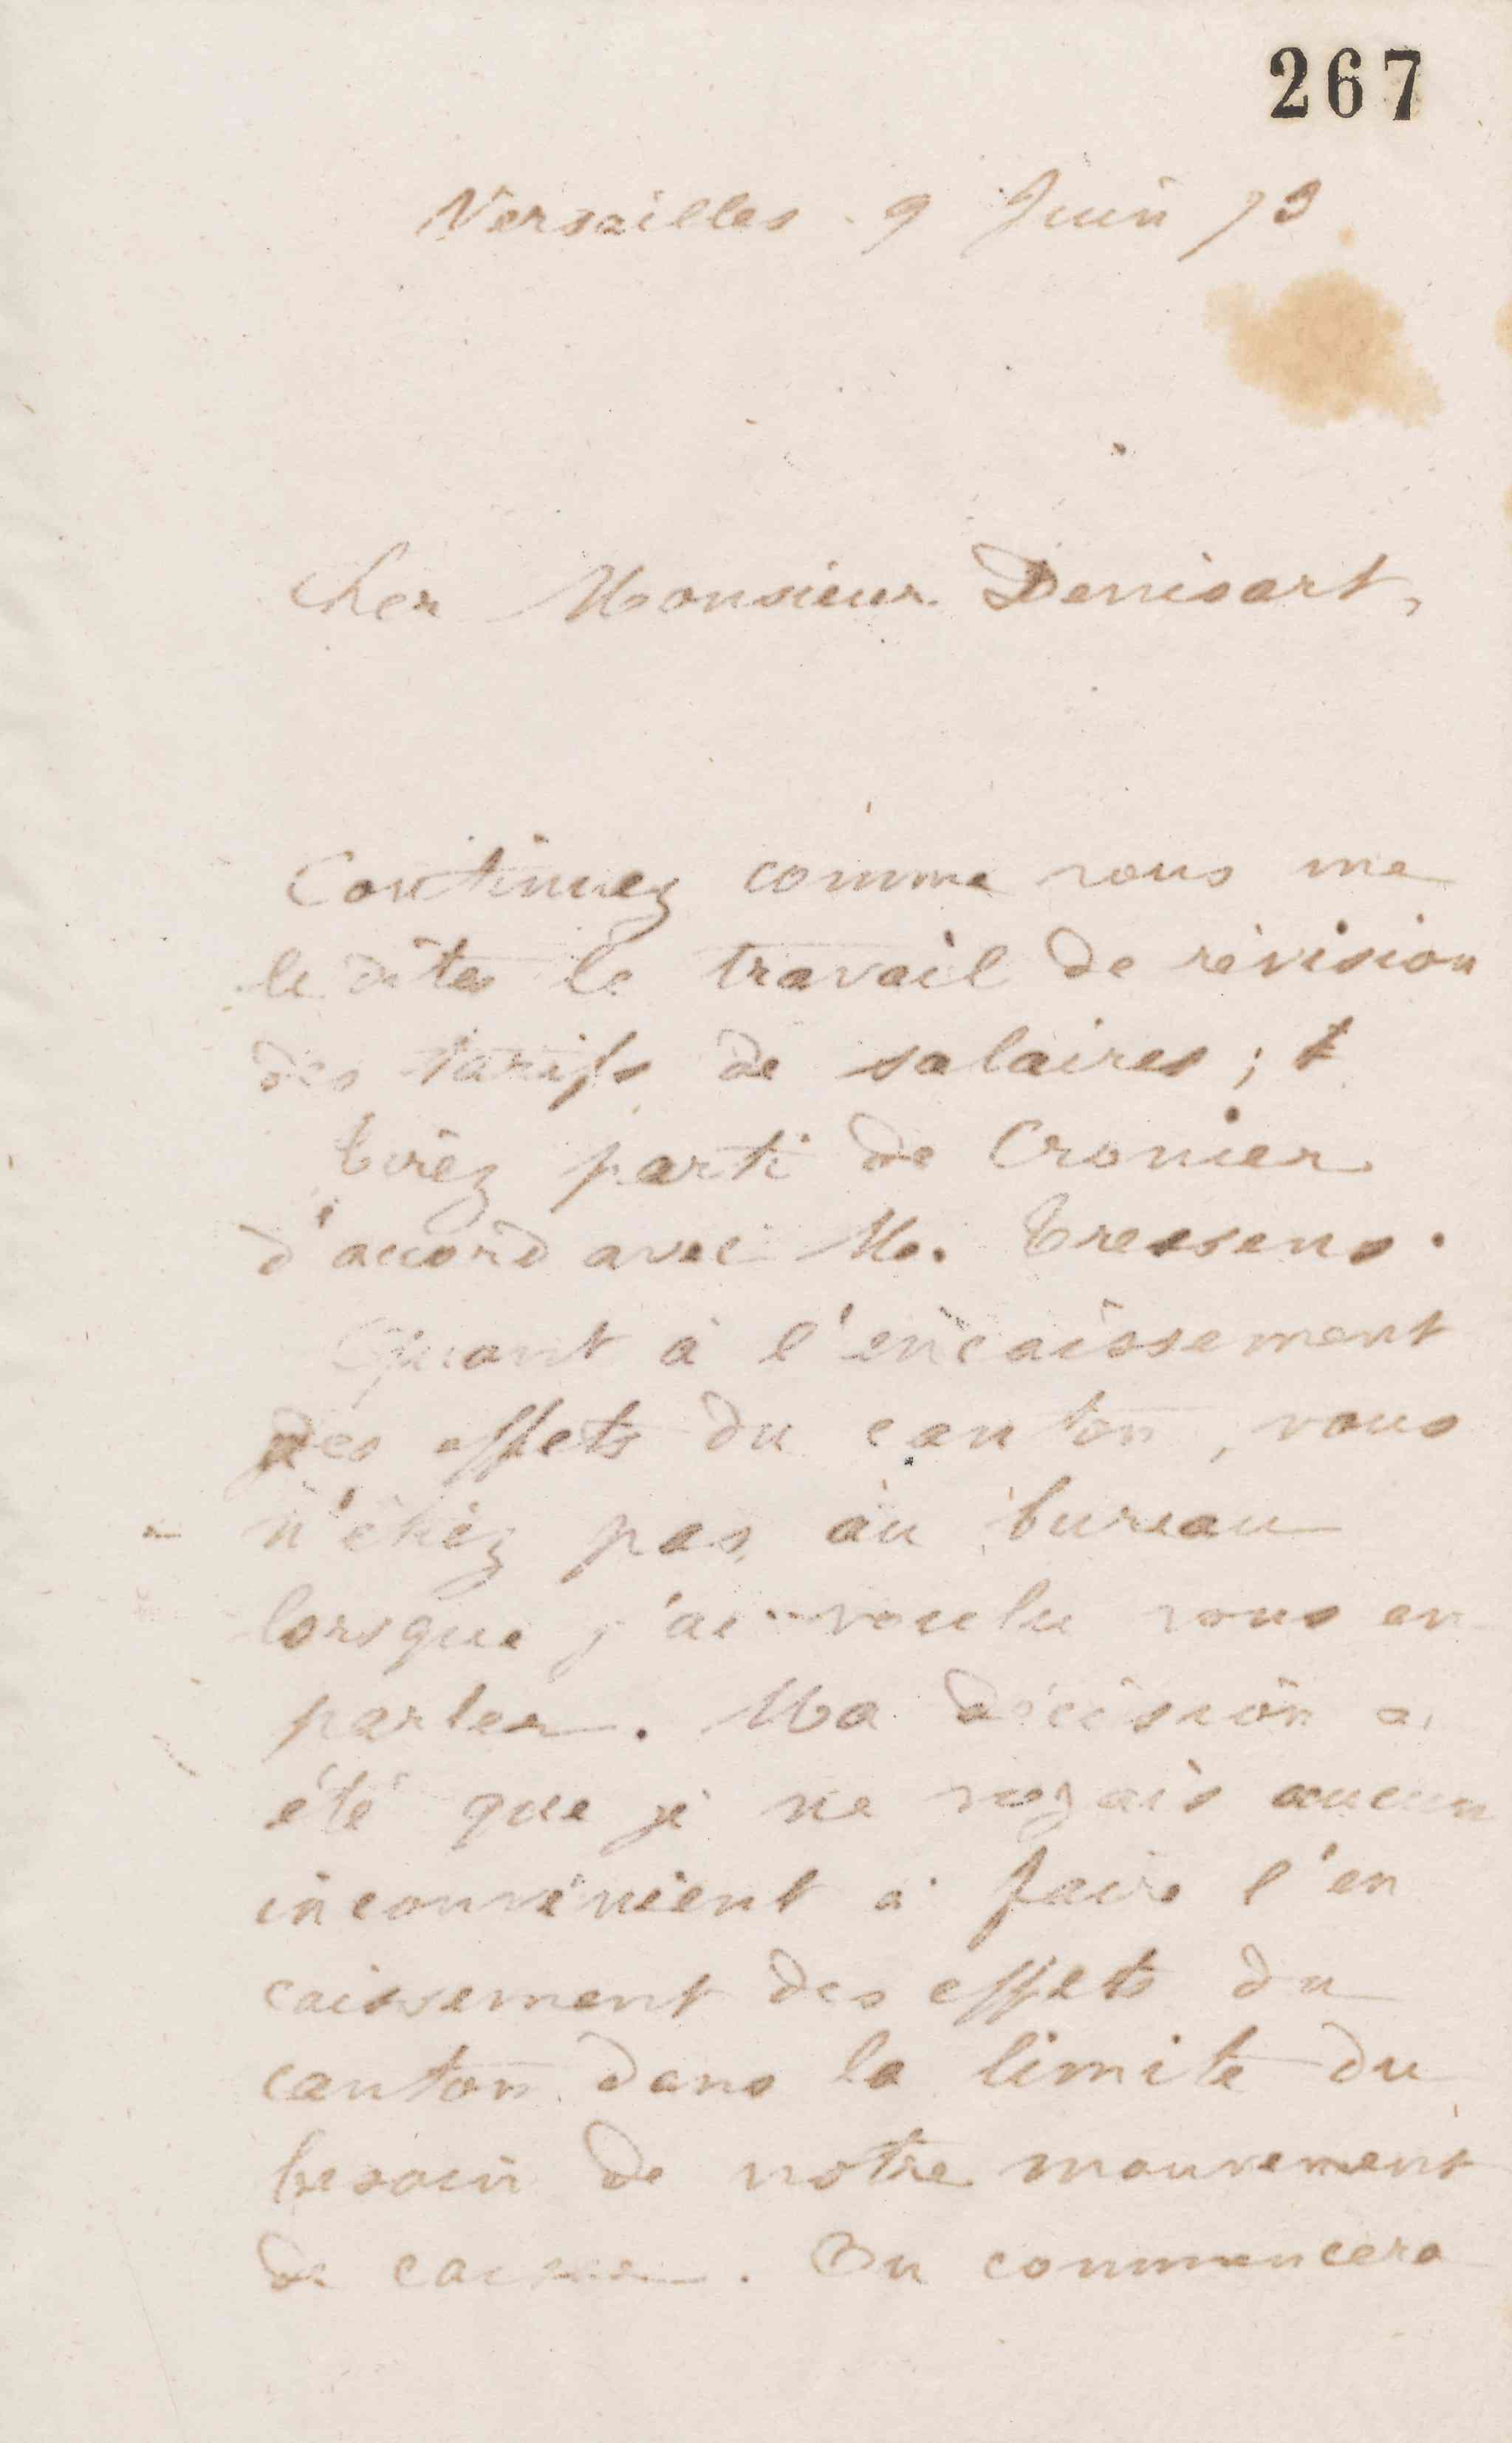 267
Versailles 9 Juin 73
Cher Monsieur Denisart,
Continuez comme vous me
le dites le travail de révision
des tarifs de salaires ; t
tirez parti de Cronier
d'accord avec M. Tressens.
Quant à l'encaissement
des effets du canton, vous
n'étiez pas au bureau
lorsque j'ai voulu vous en
parler. Ma décision a
été que je ne voyais aucun
inconvénient à faire l'en
caissement des effets du
canton dans la limite du
besoin de notre mouvement
de caisse. On commencera